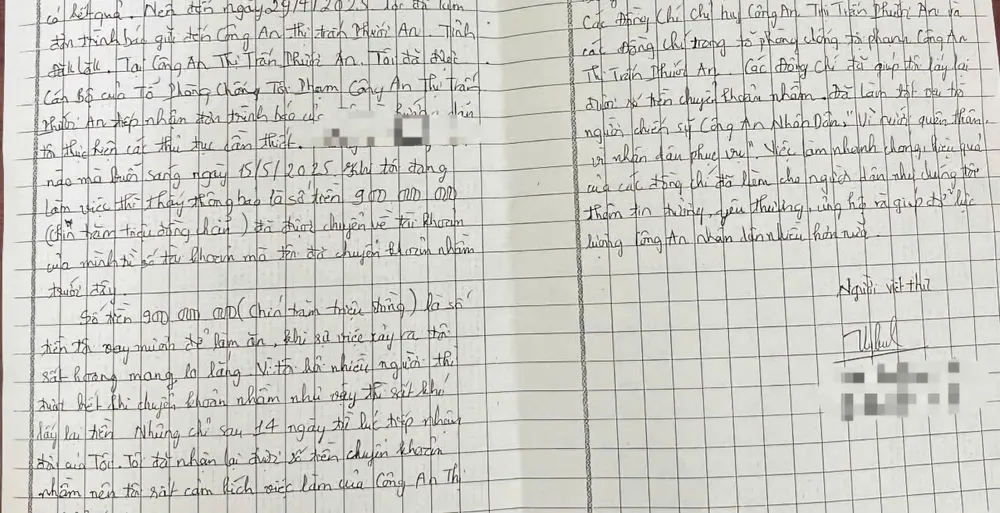 có kết quả. Nên đến ngày 29/4/2025 tôi đã làm
đơn trình báo gửi đến Công An Thị trấn Phước An. Tỉnh
Đắk Lắk. Tại Công An Thị Trấn Phước An. Tôi đã được
Cán Bộ của Tổ Phòng Chống Tội Phạm Công An Thị Trấn
Phước An tiếp nhận đơn trình báo của hướng dẫn
tôi thực hiện các thủ tục cần thiết.
nào mà buổi sáng ngày 15/5/2025 khi tôi đang
làm việc thì thấy thông báo là số tiền 900 000 000
(chín trăm triệu đồng chẵn) đã được chuyển về tài khoản
của mình từ số tài khoản mà tôi đã chuyển khoản nhầm
trước đây.
Số tiền 900 000 000 (Chín trăm triệu đồng) là số
tiền tôi vay mượn để làm ăn, khi sự việc xảy ra tôi
rất hoang mang, lo lắng. Vì tôi hỏi nhiều người thì
được biết khi chuyển khoản nhầm như vậy thì rất khó
lấy lại tiền. Nhưng chỉ sau 14 ngày từ lúc tiếp nhận
đơn của Tôi. Tôi đã nhận lại được số tiền chuyển khoản
nhầm nên tôi rất cảm kích việc làm của Công An Thị
Các Đồng Chí chỉ huy Công An Thị Trấn Phước An và
các đồng chí trong tổ phòng chống tội phạm Công An
Thị Trấn Phước An. Các Đồng Chí đã giúp tôi lấy lại
được số tiền chuyển khoản nhầm. Đã làm tốt vai trò
người chiến sỹ Công An Nhân Dân, "Vì nước quên thân,
vì nhân dân phục vụ". Việc làm nhanh chóng, hiệu quả
của các đồng chí đã làm cho người dân như chúng tôi
thêm tin tưởng, yêu thương, ủng hộ và giúp đỡ lực
lượng Công An nhân dân nhiều hơn nữa.
Người viết thư